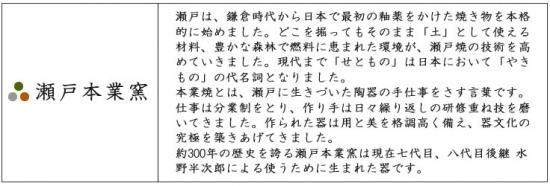 瀬戸本業窯
瀬戸は、鎌倉時代から日本で最初の釉薬をかけた焼き物を本格
的に始めました。どこを掘ってもそのまま「土」として使える
材料、豊かな森林で燃料に恵まれた環境が、瀬戸焼の技術を高
めていきました。現代まで「せともの」は日本において「やき
もの」の代名詞となりました。
本業焼とは、瀬戸に生きづいた陶器の手仕事をさす言葉です。
仕事は分業制をとり、作り手は日々繰り返しの研修重ね技を磨
いてきました。作られた器は用と美を格調高く備え、器文化の
究極を築きあげてきました。
約300年の歴史を誇る瀬戸本業窯は現在七代目、八代目後継 水
野半次郎による使うために生まれた器です。